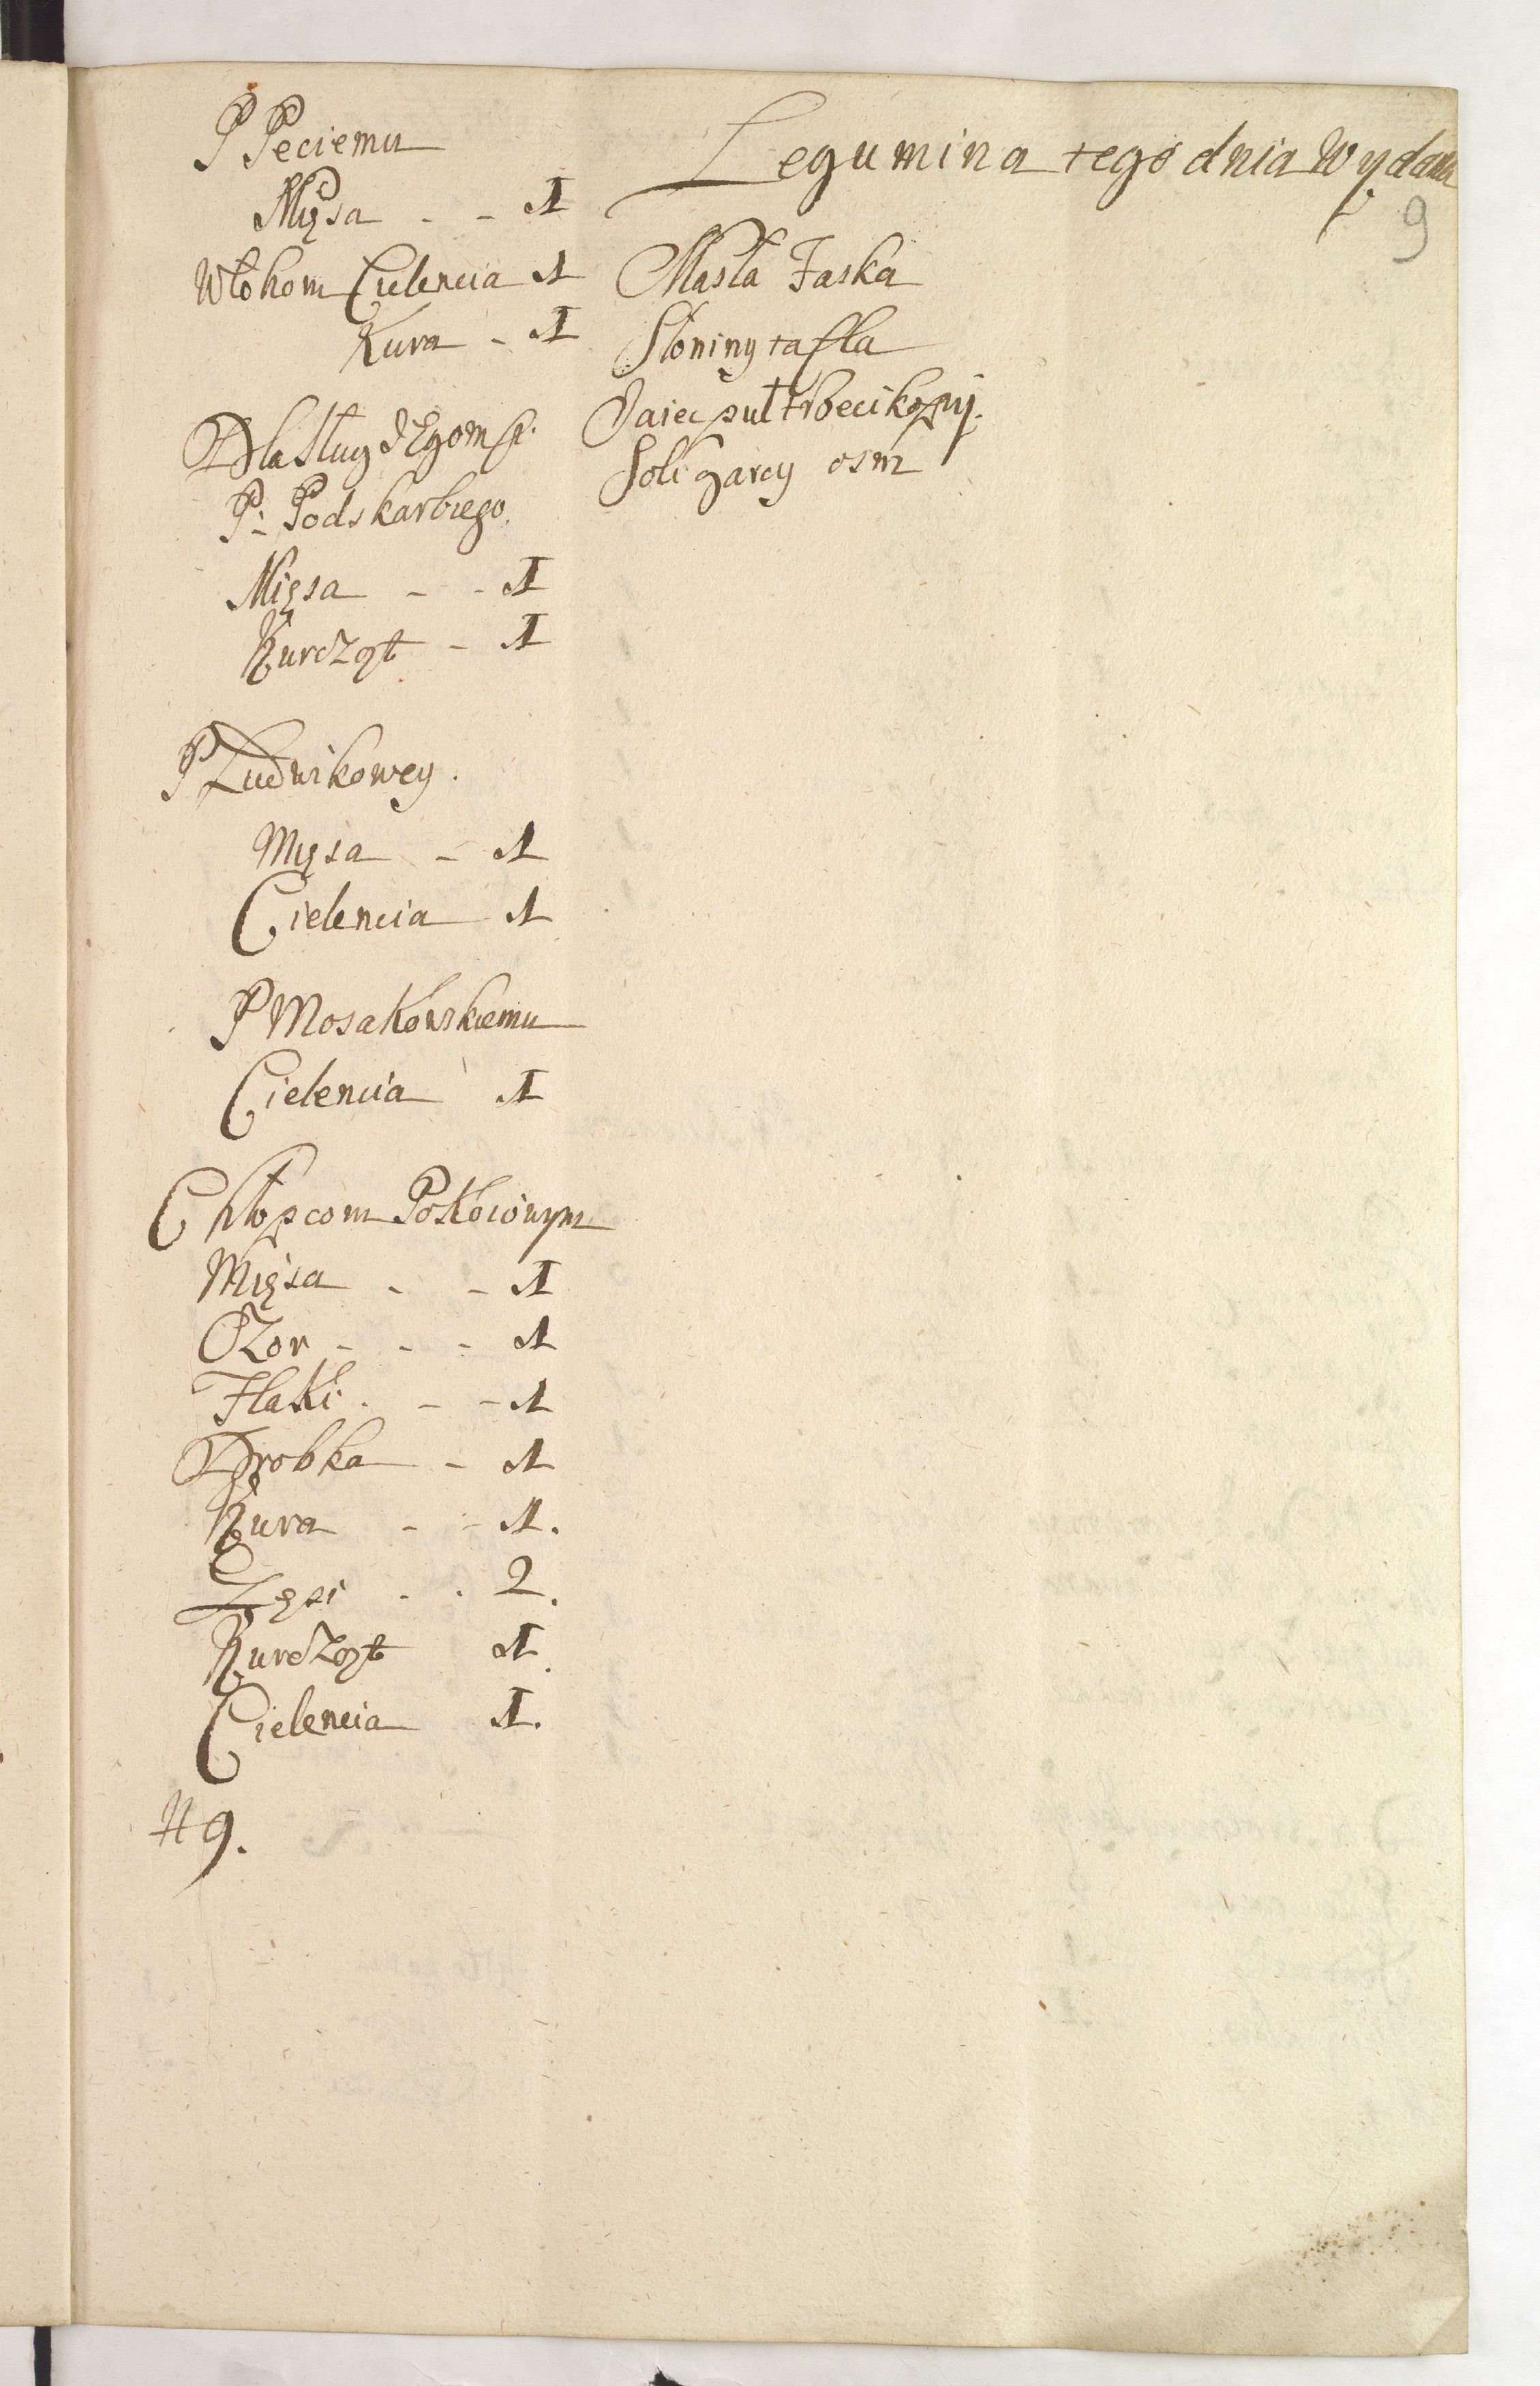 P Peciemu
Mięsa - - 1
Włohom Cielencia 1
Kura - 1
Dla Sług JEgom
P. Podskarbiego.
Mięsa - - 1
Kurcząt - 1
P Ludwikowey.
Mięsa - 1
Cielencia 1
P Mosakowskiemu
Cielencia 1
Chłopcom Pokoiowym
Mięsa - - 1
Ozor - - - 1
Flaki. - - 1
Drobka - 1
Kura - - 1.
Gęsi - . 2.
Kurcząt 1.
Cielencia 1.
# 9.
Legumina tego dnia Wydana
9
Masła Faska
Słoniny tafla
Jaiec puł kopy.
Soli garcy osm